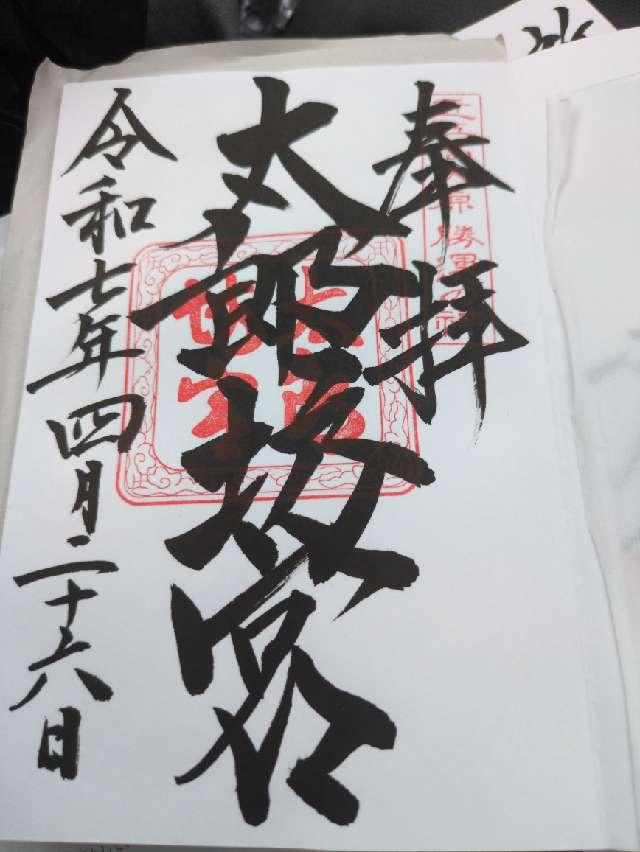 奉拝
太郎坊宮
令和七年四月二十六日